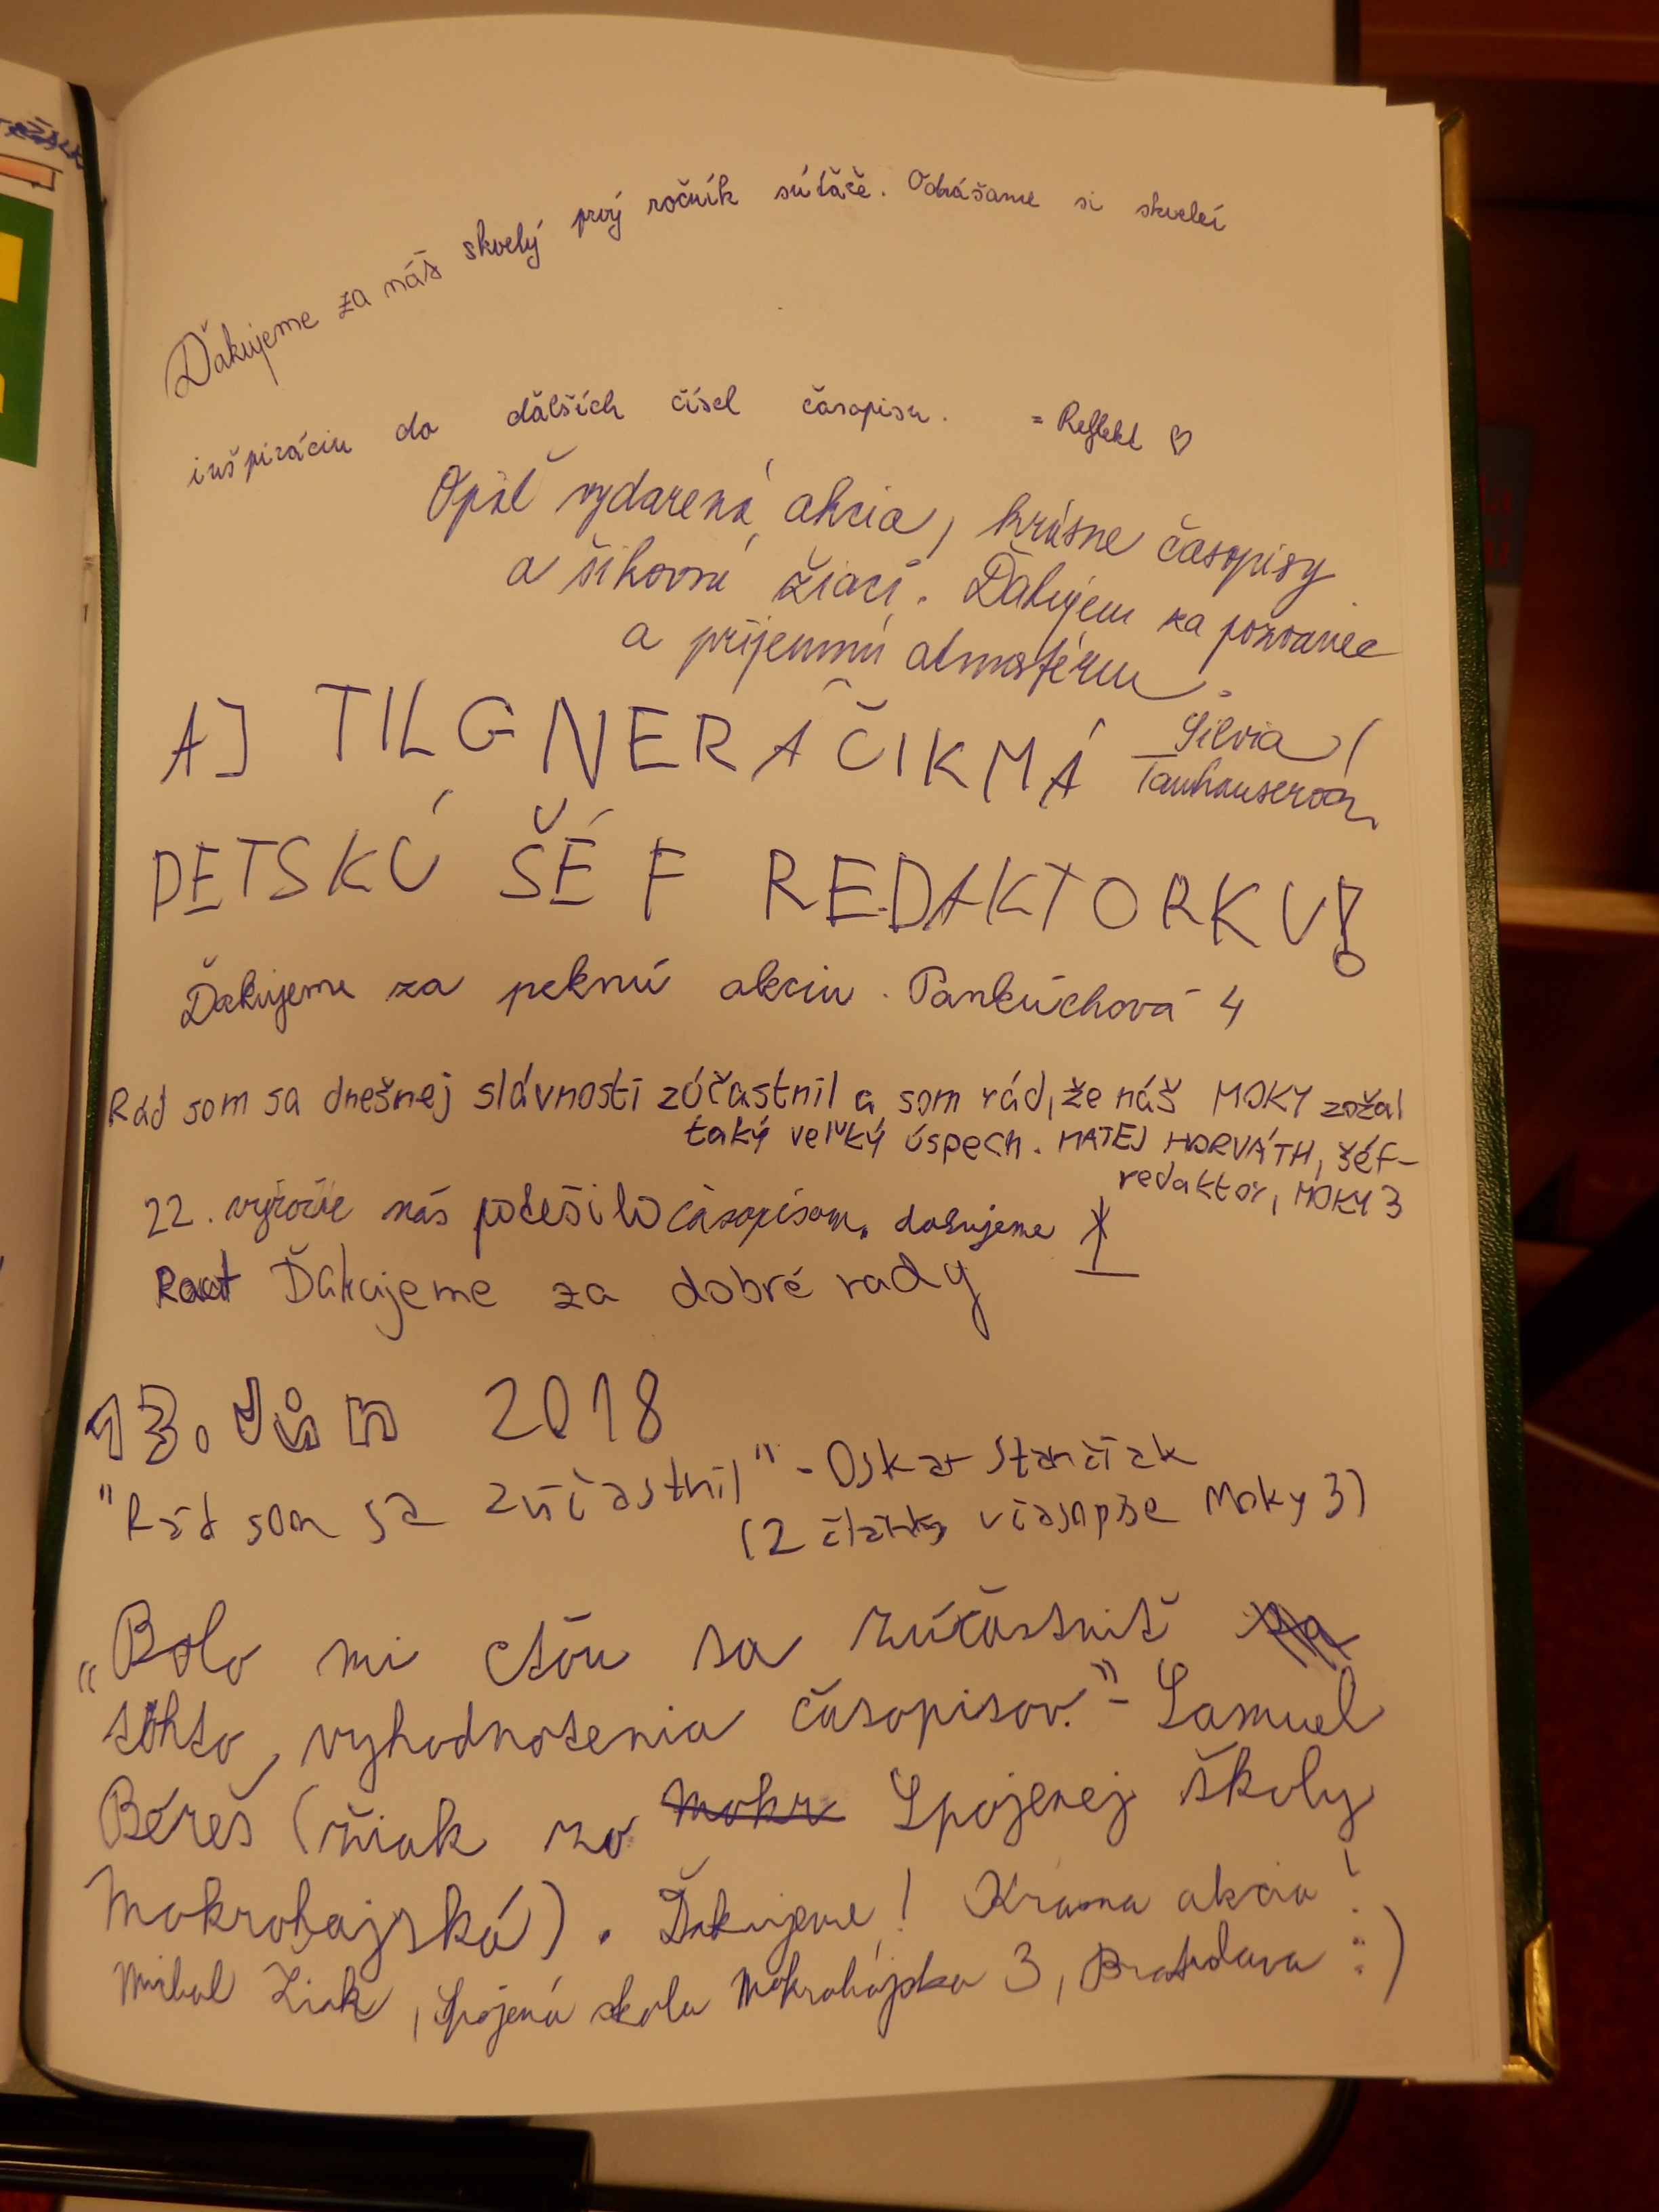 Ďakujeme za náš skvelý prvý ročník súťaže. Odnášame si skvelú
inšpiráciu do ďalších čísel časopisu. = Reflekt ♡
Opäť vydarená akcia, krásne časopisy
a šikovní žiaci. Ďakujem za pozvanie
a príjemnú atmosféru.
Silvia
Tanhauserová
AJ TILGNERÁČIK MÁ
DETSKÚ ŠÉF REDAKTORKU!
Ďakujeme za peknú akciu. Pankúchová 4
Rád som sa dnešnej slávnosti zúčastnil a som rád, že náš MOKY zožal
taký veľký úspech. MATEJ HORVÁTH, šéf-
redaktor, MOKY 3
22. výročie nás potešilo časopisom.
Ďakujeme za dobré rady
13. Jún 2018
"Rád som sa zúčastnil" - Oskar Stančiak
(2 články v časopise Moky 3)
„Bolo mi cťou sa zúčastniť
tohto vyhodnotenia časopisov." - Samuel
Béreš (žiak zo Spojenej školy
Mokrohajská). Ďakujeme! Krásna akcia!
Žiak, Spojená škola Mokrohájska 3, Bratislava :)